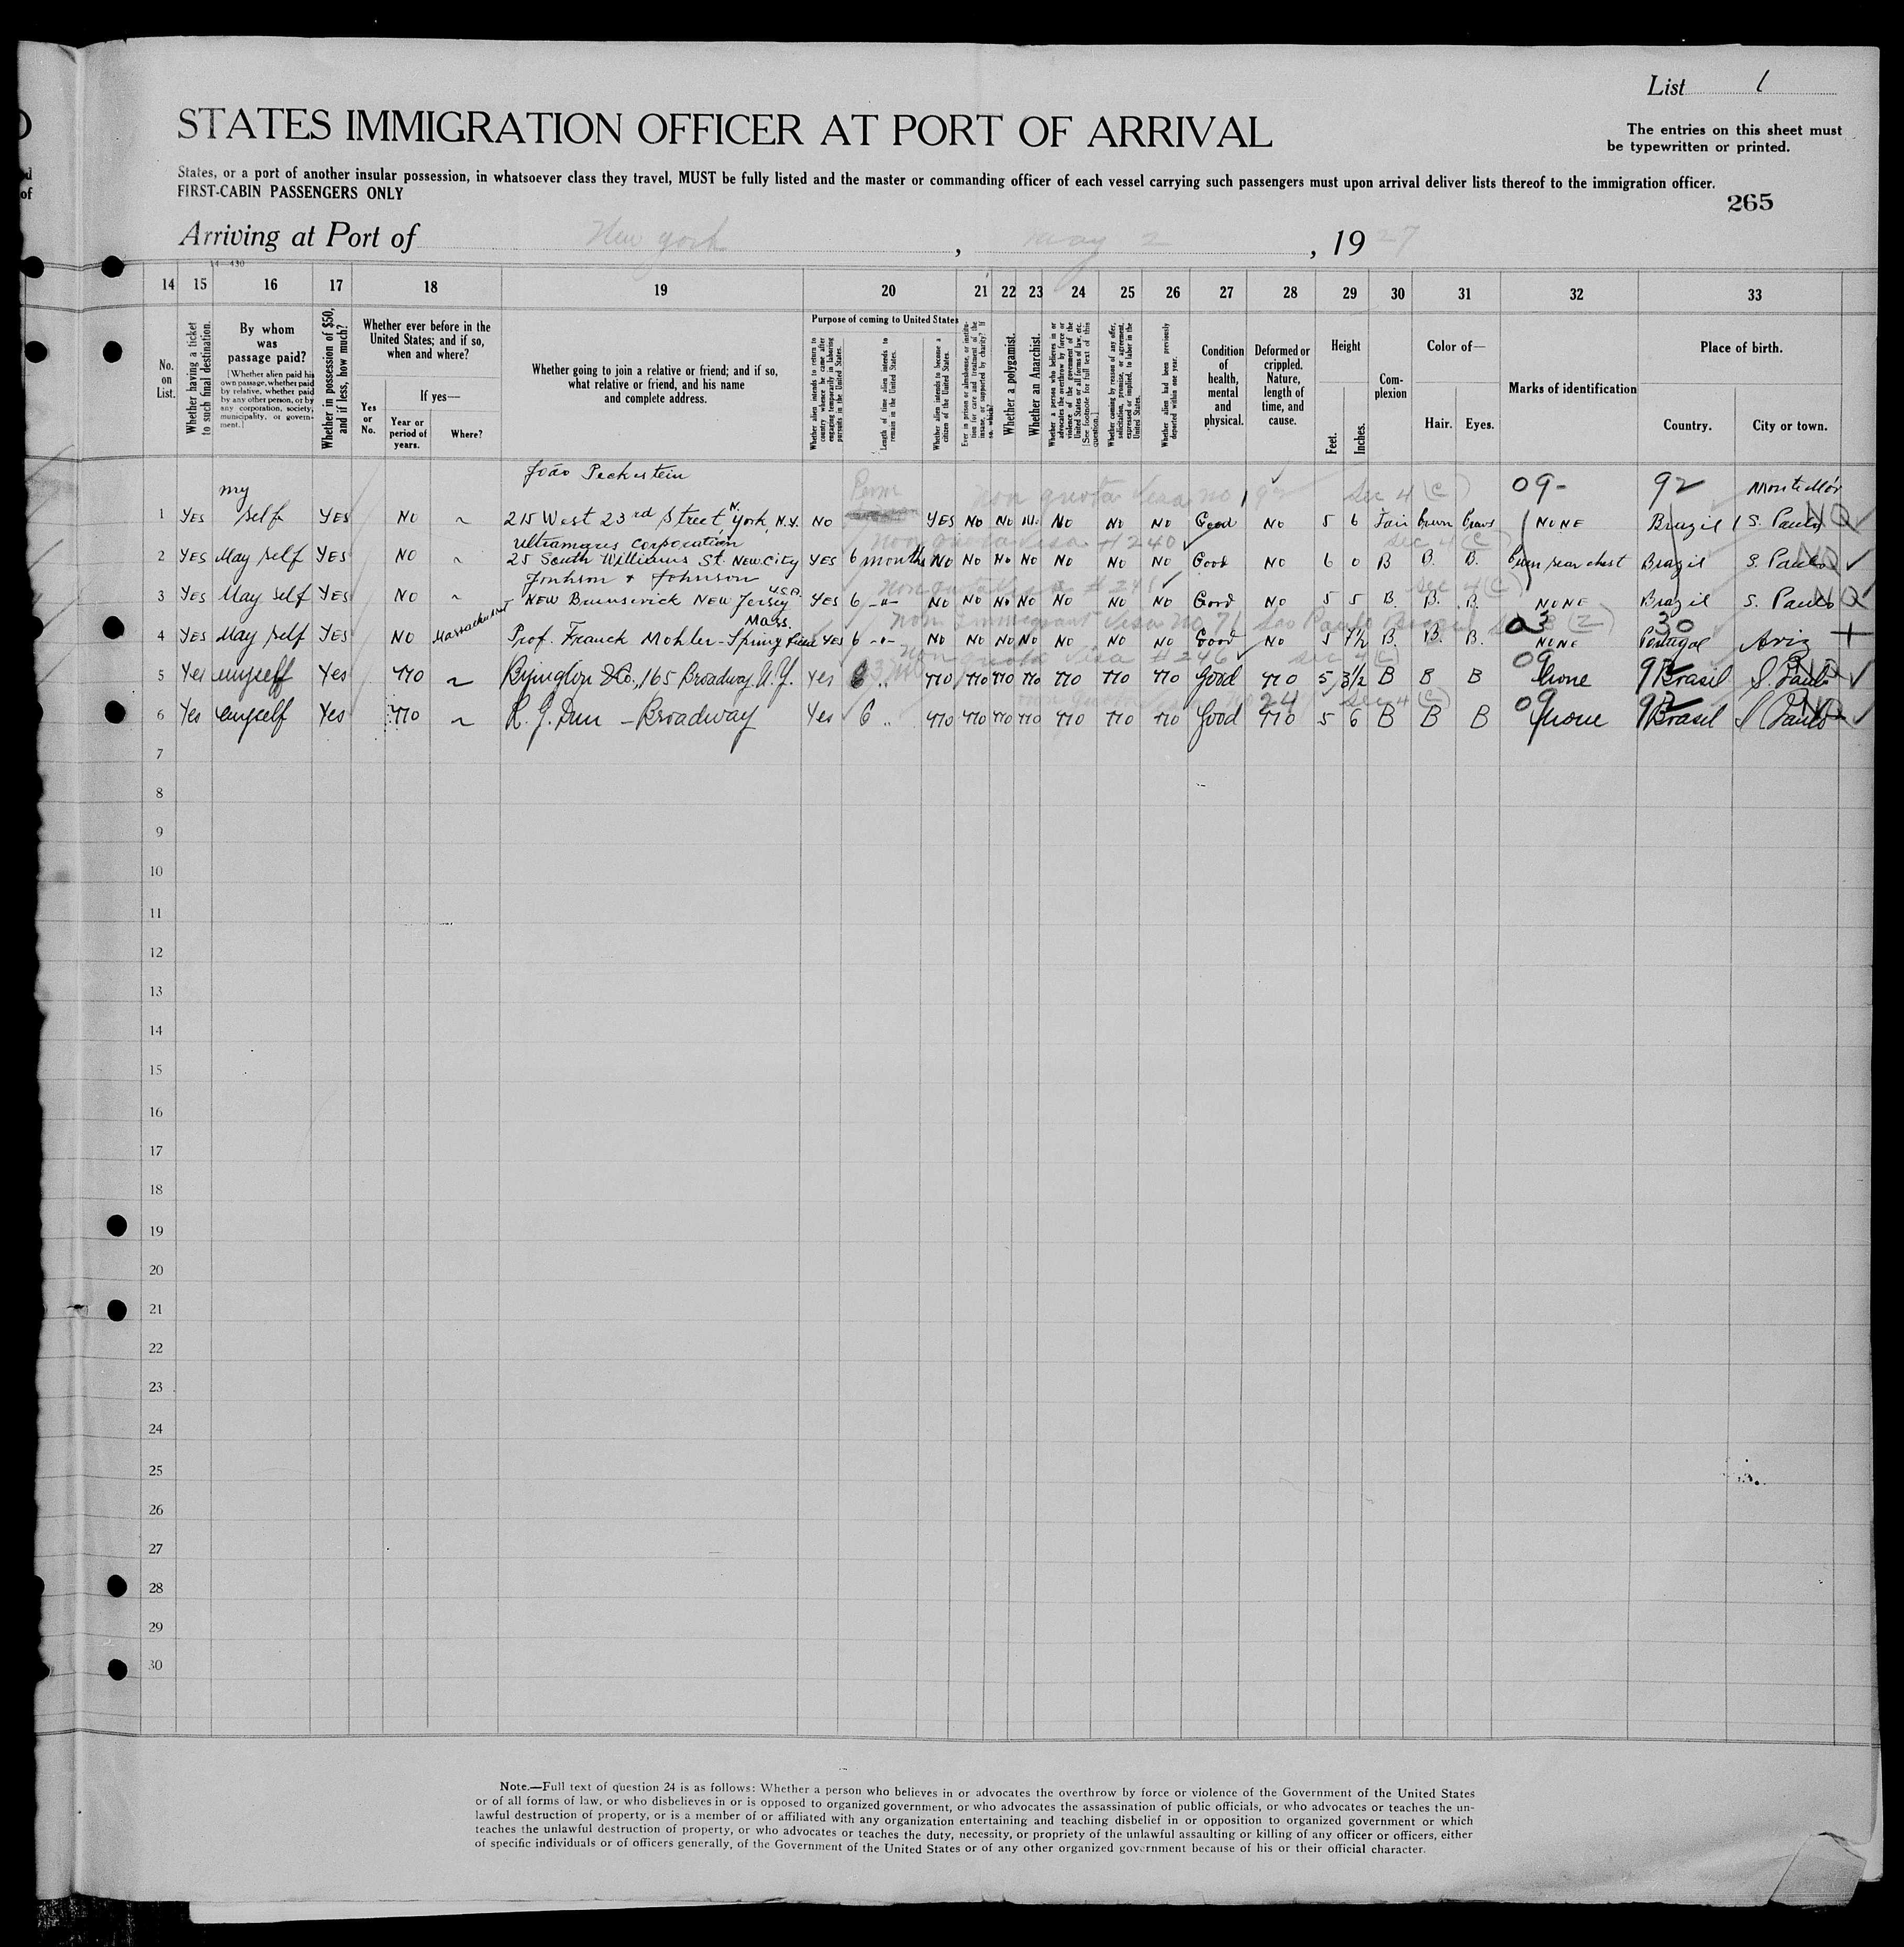 List 1
STATES IMMIGRATION OFFICER AT PORT OF ARRIVAL
The entries on this sheet must
be typewritten or printed.
States, or a port of another insular possession, in whatsoever class they travel, MUST be fully listed and the master or commanding officer of each vessel carrying such passengers must upon arrival deliver lists thereof to the immigration officer.
FIRST-CABIN PASSENGERS ONLY
265
Arriving at Port of New York, May 2, 1927
14—430
14 15 16 17 18 19 20 21 22 23 24 25 26 27 28 29 30 31 32 33
No. on List.
Whether having a ticket to such final destination.
By whom was passage paid?
[Whether alien paid his own passage, whether paid by relative, whether paid by any other person, or by any corporation, society, municipality, or government.]
Whether in possession of $50, and if less, how much?
Whether ever before in the United States; and if so, when and where?
Yes or No.
If yes—
Year or period of years.
Where?
Whether going to join a relative or friend; and if so, what relative or friend, and his name and complete address.
Purpose of coming to United States
Whether alien intends to return to country whence he came after engaging temporarily in laboring pursuits in the United States.
Length of time alien intends to remain in the United States.
Whether alien intends to become a citizen of the United States.
Ever in prison or almshouse, or institution for care and treatment of the insane, or supported by charity? If so, which?
Whether a polygamist.
Whether an Anarchist.
Whether a person who believes in or advocates the overthrow by force or violence of the government of the United States or all forms of law, etc. [See footnote for full text of this question.]
Whether coming by reason of any offer, solicitation, promise, or agreement, expressed or implied, to labor in the United States.
Whether alien had been previously deported within one year.
Condition of health, mental and physical.
Deformed or crippled. Nature, length of time, and cause.
Height
Feet.
Inches.
Complexion
Color of—
Hair.
Eyes.
Marks of identification
Place of birth.
Country.
City or town.
João Peckstein
my Perm non quota visa no 192 Sec 4 (c) 09- 92
1 YES self YES NO ~ 215 West 23rd Street N. York, N.Y. NO YES NO NO NO NO NO Good NO 5 6 Fair NONE Brazil S. Paulo NQ
Ultramares Corporation non quota visa #240 Sec 4 (c)
2 YES May self YES NO ~ 25 South Williams St. New. City YES 6 months NO NO NO NO NO NO NO Good NO 6 0 B B. B. Brazil S. Paulo NQ
Jonhson & Johnson non quota visa Sec 4 (c)
3 YES May self YES NO ~ NEW Brunswick NEW Jersey U.S.A. YES 6 -"- NO NO NO NO NO NO NO Good NO 5 5 B. B. B. NONE Brazil S. Paulo NQ
Mass. non Immigrant Visa No 71 Sao Paulo Brazil 03 30
4 YES May self YES NO Massachuset Prof. Franck Mohler - Spring YES 6 -"- NO NO NO NO NO NO NO Good NO 5 B. B. B. NONE Portugal Aviz
non quota visa #246 Sec 4 (c) 09 92
5 Yes myself Yes no ~ Byington & Co., 165 Broadway N.Y. Yes 6 " no no no no no no no Good no 5 3½ B B B none Brasil S. Paulo NQ
Sec 4 (c) 09 92
6 Yes myself Yes no ~ R. G. Dun - Broadway Yes 6 " no no no no no no no Good no 5 6 B B B none Brasil S. Paulo NQ
7
8
9
10
11
12
13
14
15
16
17
18
19
20
21
22
23
24
25
26
27
28
29
30
Note.—Full text of question 24 is as follows: Whether a person who believes in or advocates the overthrow by force or violence of the Government of the United States
or of all forms of law, or who disbelieves in or is opposed to organized government, or who advocates the assassination of public officials, or who advocates or teaches the un-
lawful destruction of property, or is a member of or affiliated with any organization entertaining and teaching disbelief in or opposition to organized government or which
teaches the unlawful destruction of property, or who advocates or teaches the duty, necessity, or propriety of the unlawful assaulting or killing of any officer or officers, either
of specific individuals or of officers generally, of the Government of the United States or of any other organized government because of his or their official character.